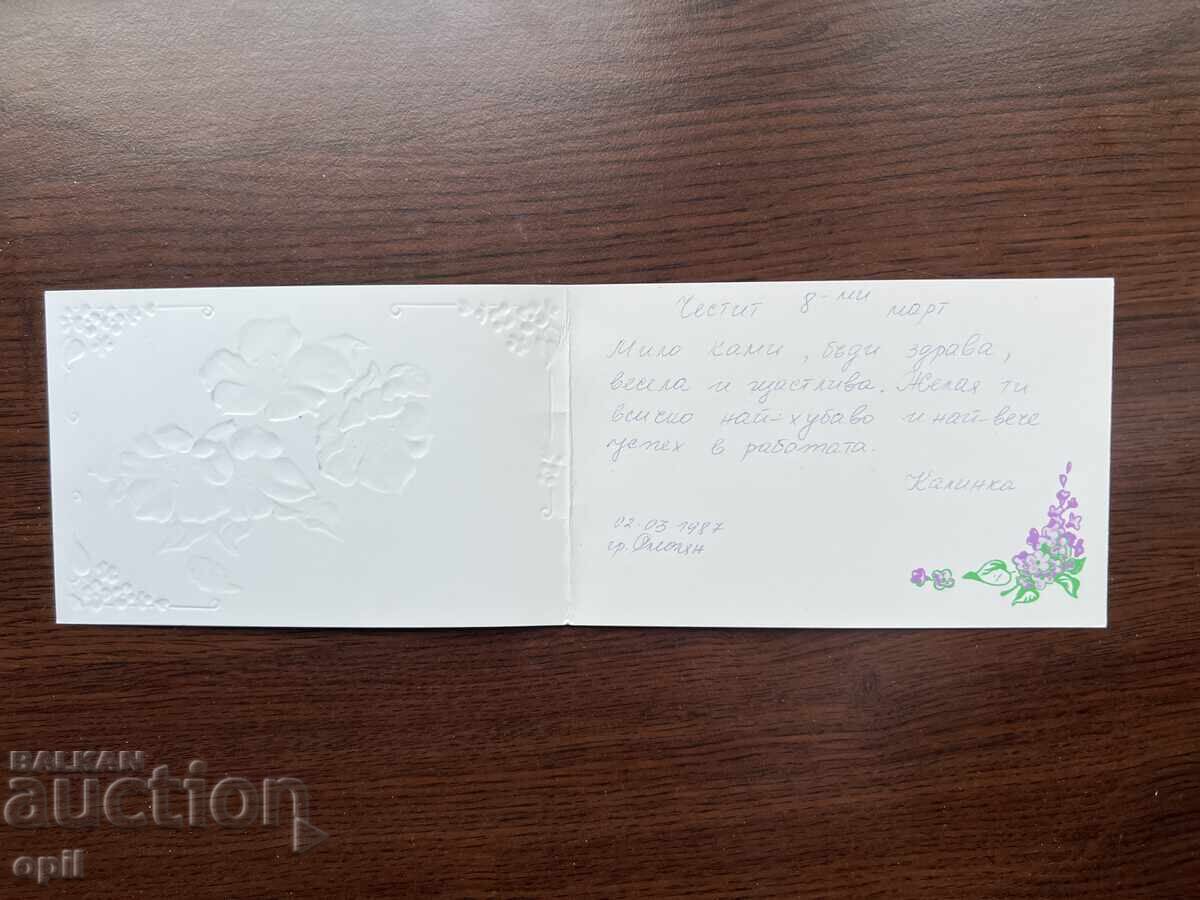 Честит 8-ми март
Мила Ками, бъди здрава,
весела и щастлива. Желая ти
всичко най-хубаво и най-вече
успех в работата.
Калинка
02.03.1987
гр. Смолян
BALKAN
auction
opil